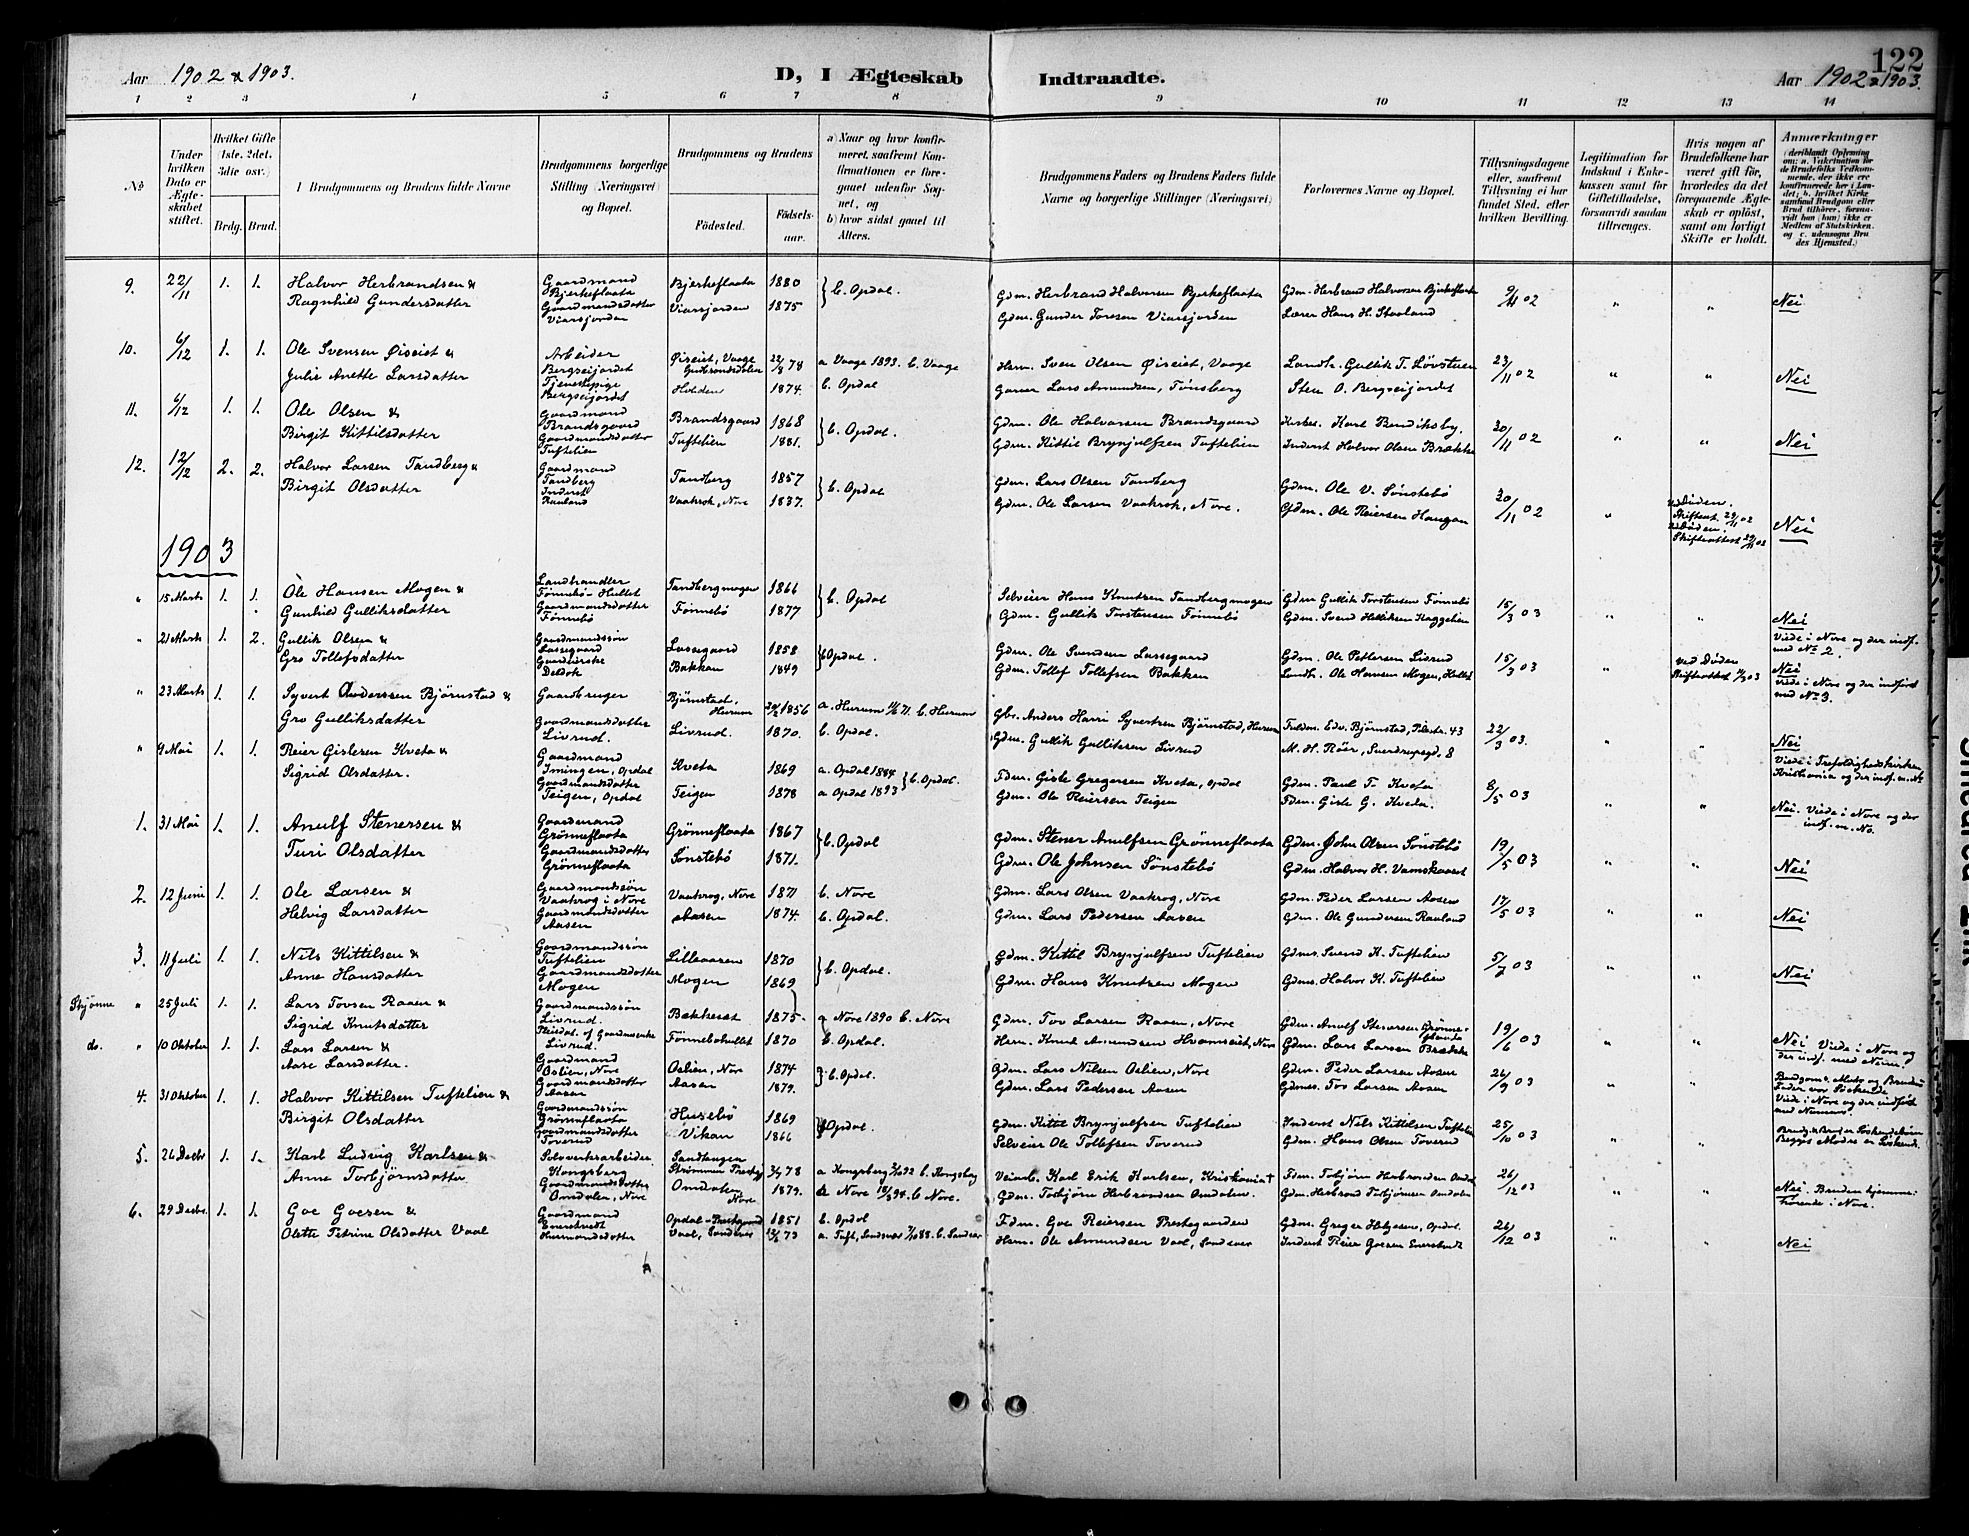 122
Aar 1902 & 1903.
D, I Ægteskab Indtraadte.
Aar 1902 & 1903.
1 2 3 4 5 6 7 8 9 10 11 12 13 14
No
Under hvilken Dato er Ægteskabet stiftet.
Hvilket Gifte (1ste, 2det, 3die osv.)
Brdg. Brud.
I Brudgommens og Brudens fulde Navne
Brudgommens borgerlige Stilling (Næringsvei) og Bopæl.
Brudgommens og Brudens
Födested. Födselsaar.
a) Naar og hvor konfirmeret, saafremt Konfirmationen er foregaaet udenfor Sognet, og
b) hvor sidst gaaet til Alters.
Brudgommens Faders og Brudens Faders fulde Navne og borgerlige Stillinger (Næringsvei)
Forlovernes Navne og Bopæl.
Tillysningsdagene eller, saafremt Tillysning ei har fundet Sted, efter hvilken Bevilling.
Legitimation for Indskud i Enkekassen samt for Giftetilladelse, forsaavidt saadan tiltrænges.
Hvis nogen af Brudefolkene har været gift før, hvorledes da det foregaaende Ægteskab er oplöst, samt om lovligt Skifte er holdt.
Anmærkninger (deriblandt Oplysning om: a. Vakcination for de Brudefolks Vedkommende, der ikke ere konfirmerede her i Landet; b. hvilket Kirkesamfund Brudgom eller Brud tilhører, forsaavidt han (hun) ikke er Medlem af Statskirken, og c. udensogns Brudes Hjemsted.)
9. 22/11 1. 1. Halvor Herbrandsen & Gaardmand Bjerkeflaata Bjerkeflaata 1880 } b. Opdal. Gdm. Herbrand Halvorsen Bjerkeflaata Gdm. Herbrand Halvorsen Bjerkeflaata 9/11 02 " " Nei
Ragnhild Gundersdatter Gaardmandsdatter Viarsjorden Viarsjorden 1875 Gdm. Gunder Toresen Viarsjorden Lærer Hans H. Staaland
10. 6/12 1. 1. Ole Svensen Øiseist & Arbeider Bergseijordet Øiseist, Vaage Gudbrandsdalen 22/8 78 a Vaage 1893. b. Vaage Hsm. Sven Olsen Øiseist, Vaage Landh. Gullik T. Løvsteen 23/11 02 " " Nei
Julie Anette Larsdatter Tjenestepige Bergseijordet Holden 1874. b. Opdal Lars Amundsen, Tønsberg Sten O. Bergseijordet
11. 6/12 1. 1. Ole Olsen & Gaardmand Brandsgaard Brandsgaard 1868 } b. Opdal. Gdm. Ole Halvorsen Brandsgaard Karl Bendiksby. 30/11 02 " " Nei
Birgit Kittilsdatter Gaardmandsdatter Tuftelien Tuftelien 1881. Gdm. Kittil Brynjulfsen Tuftelien Inderst Halvor Olsen Brække
12. 12/12 2. 2. Halvor Larsen Tandberg & Gaardmand Tandberg Tandberg 1857 } b. Opdal Gdm. Lars Olsen Tandberg Gdm. Ole V. Sønstebø 30/11 02 " ved Døden. Skifteat. 29/11 02 Nei
Birgit Olsdatter Inderst Rauland Vaakrok, Nore 1837. Gdm. Ole Larsen Vaakrok, Nore. Gdm. Ole Reiersen Haugan ved Døden. Skifteattest 29/11 02
1903
" 15 Marts 1. 1. Ole Hansen Mogen & Landhandler Fønnebø-Hullet Tandbergmogen 1866 } b. Opdal Selveier Hans Knutsen Tandbergmogen Gdm Gullik Torstensen Fønnebø 15/3 03 " " Nei
Gunhild Gulliksdatter Gaardmandsdatter Fønnebø Fønnebø 1877 Gdm. Gullik Torstensen Fønnebø Gdm. Svend Helliksen Kaggelien Viede i Nore og der indf. med No 2.
" 21 Marts 1. 2. Gullik Olsen & Gaardmandssøn Lassegaard Lassegaard 1858 } b Opdal. Gdm. Ole Svendsen Lassegaard Gdm. Ole Pettersen Livrud 15/3 03 " ved Døden Nei
Gro Tollefsdatter Gaardkjerske Deldok Bakkan 1849 Gdm. Tollef Tollefsen Bakken Landh. Ole Hansen Mogen, Hullet Skifteattest 03 viede i Nore og der indført med No 3.
" 23 Marts 1. 1. Syvert Anderssen Bjørnstad & Gaardbruger Bjørnstad, Hurum 1856 a. Hurum 71. b. Hurum Gbr. Anders Harri Syvertsen Bjørnstad, Hurum Fuldm. Edv. Bjørnstad, Pilestr. 43 22/3 03. " " Nei
Gro Gulliksdatter Gaardmandsdatter Livrud. Livrud. 1870. b. Opdal. Gdm. Gullik Gulliksen Livrud M. H. Röir, Sverdrupsgd. 8 Viede i Trefoldighedskirken Kristiania og der indf. m. No
" 9 Mai 1. 1. Reier Gislesen Kveta & Gaardmand Imingen, Opdal Kveta 1869 a. Opdal 1884 } b. Opdal. Fdm. Gisle Gregersen Kveta, Opdal Gdm. Paul T. Kveta 8/5 03 " " Nei. Viede i Nore og der indf. m. No.
Sigrid Olsdatter. Gaardmandsdatter Teigen, Opdal Teigen 1878 a Opdal 1893 Gdm. Ole Reiersen Teigen Fdm. Gisle G. Kveta.
1. 31 Mai 1. 1. Anulf Stenersen & Gaardmand Grönneflaata Grönneflaata 1867 } b. Opdal Gdm. Stener Anulfsen Grönneflaata Gdm. John Olsen Sønstebö 19/5 03 " " Nei
Turi Olsdatter Gaardmandsdatter Grönneflaata Sønstebö 1871. Gdm. Ole Johnsen Sønstebö Gdm. Halvor H. Vamskaaset
2. 12 Juni 1. 1. Ole Larsen & Gaardmandssøn Vaakrog i Nore Vaakrog, Nore 1871 b. Nore Gdm. Lars Olsen Vaakrog, Nore Gdm. Peder Larsen Aasen 17/5 03 " " Nei
Helvig Larsdatter Gaardmandsdatter Aasen Aasen 1874. b. Opdal. Gdm. Lars Pedersen Aasen Gdm. Ole Gundersen Rauland
3. 11 Juli 1. 1. Nils Kittilsen & Gaardmandssøn Tuftelien Lilleaasen 1870 } b. Opdal. Gdm. Kittil Brynjulfsen Tuftelien Gdms. Svend K. Tuftelien 5/7 03 " " Nei
Anne Hansdatter Gaardmandsdatter Mogen Mogen 1869 Gdm. Hans Knutsen Mogen Gdms. Halvor K. Tuftelien
Skjønne " 25 Juli 1. 1. Lars Tovsen Raaen & Gaardmandssøn Livrud. Bækkeset 1875. a Nore 1890 b. Nore Gdm. Tov Larsen Raaen, Nore Gdm. Anulf Stenersen Grønneflaata 19/6 03 " " Nei Viede i Nore og der indf. med Numer.
Sigrid Knutsdatter Livrud. Fønnebøhullet 1870 b. Opdal. Hsm. Knut Amundsen Hvamseist, Nore Gdm. Lars Larsen Brække
do. " 10 Oktober 1. 1. Lars Larsen & Gaardmand Oslien, Nore Oslien, Nore 1874 } b. Opdal. Gdm. Lars Nilsen Oslien, Nore Gdm. Peder Larsen Aasen 26/9 03 " " Brudgoms Moder og Brudens Fader var Søskende
Aase Larsdatter Gaardmandsdatter Aasen Aasen 1879. Gdm. Lars Pedersen Aasen Gdmss. Tov Larsen Aasen Viede i Nore og der indført med Nummer.
4. 31 Oktober 1. 1. Halvor Kittilsen Tuftelien & Gaardmandssøn Grønneflaata Husebö 1869 } b Opdal. Gdm. Kittil Brynjulfsen Tuftelien Inderst Nils Kittilsen Tuftelien 25/10 03 " " Brudg. & Brud er Søskendebörn Begges Mødre er Søskende.
Birgit Olsdatter Gaardmandsdatter Toverud Vikan 1866 Selveier Ole Tollefsen Toverud Gdm. Hans Olsen Toverud
5. 26 Decbr 1. 1. Karl Ludvig Karlsen & Sølvverksarbeider Kongsberg Sandtangen Strömmen Prestegj 78 a Kongsberg 92 b. Kongsberg Veiarb. Karl Erik Karlsen, Kristiania Fdm. Tobjörn Herbrandsen Omdalen 26/12 03 " " Nei. Bruden hjemmehörende i Nore.
Anne Torbjörnsdatter Gaardmandsdatter Omdalen, Nore Omdalen Nore 1879. a Nore 94. b. Nore. Gdm. Torbjörn Herbrandsen Omdalen. Gdm. Herbrand Torbjörnsen Omdalen
6. 29 Decbr. 1. 1. Goe Goesen & Gaardmand Enerstvedt Opdal-Prestgaard 1851 b. Opdal Fdm. Goe Reiersen Prestegaarden Gdm. Greger Helgesen, Opdal. 26/12 03 " " Nei
Olette Petrine Olsdatter Vaal Husmandsdatter Vaal, Sandsvær 73 a. Tuft, Sandsvær 88. b. Sandsvær Hsm. Ole Amundsen Vaal, Sandsvær Inderst Reier Goesen Enerstvedt